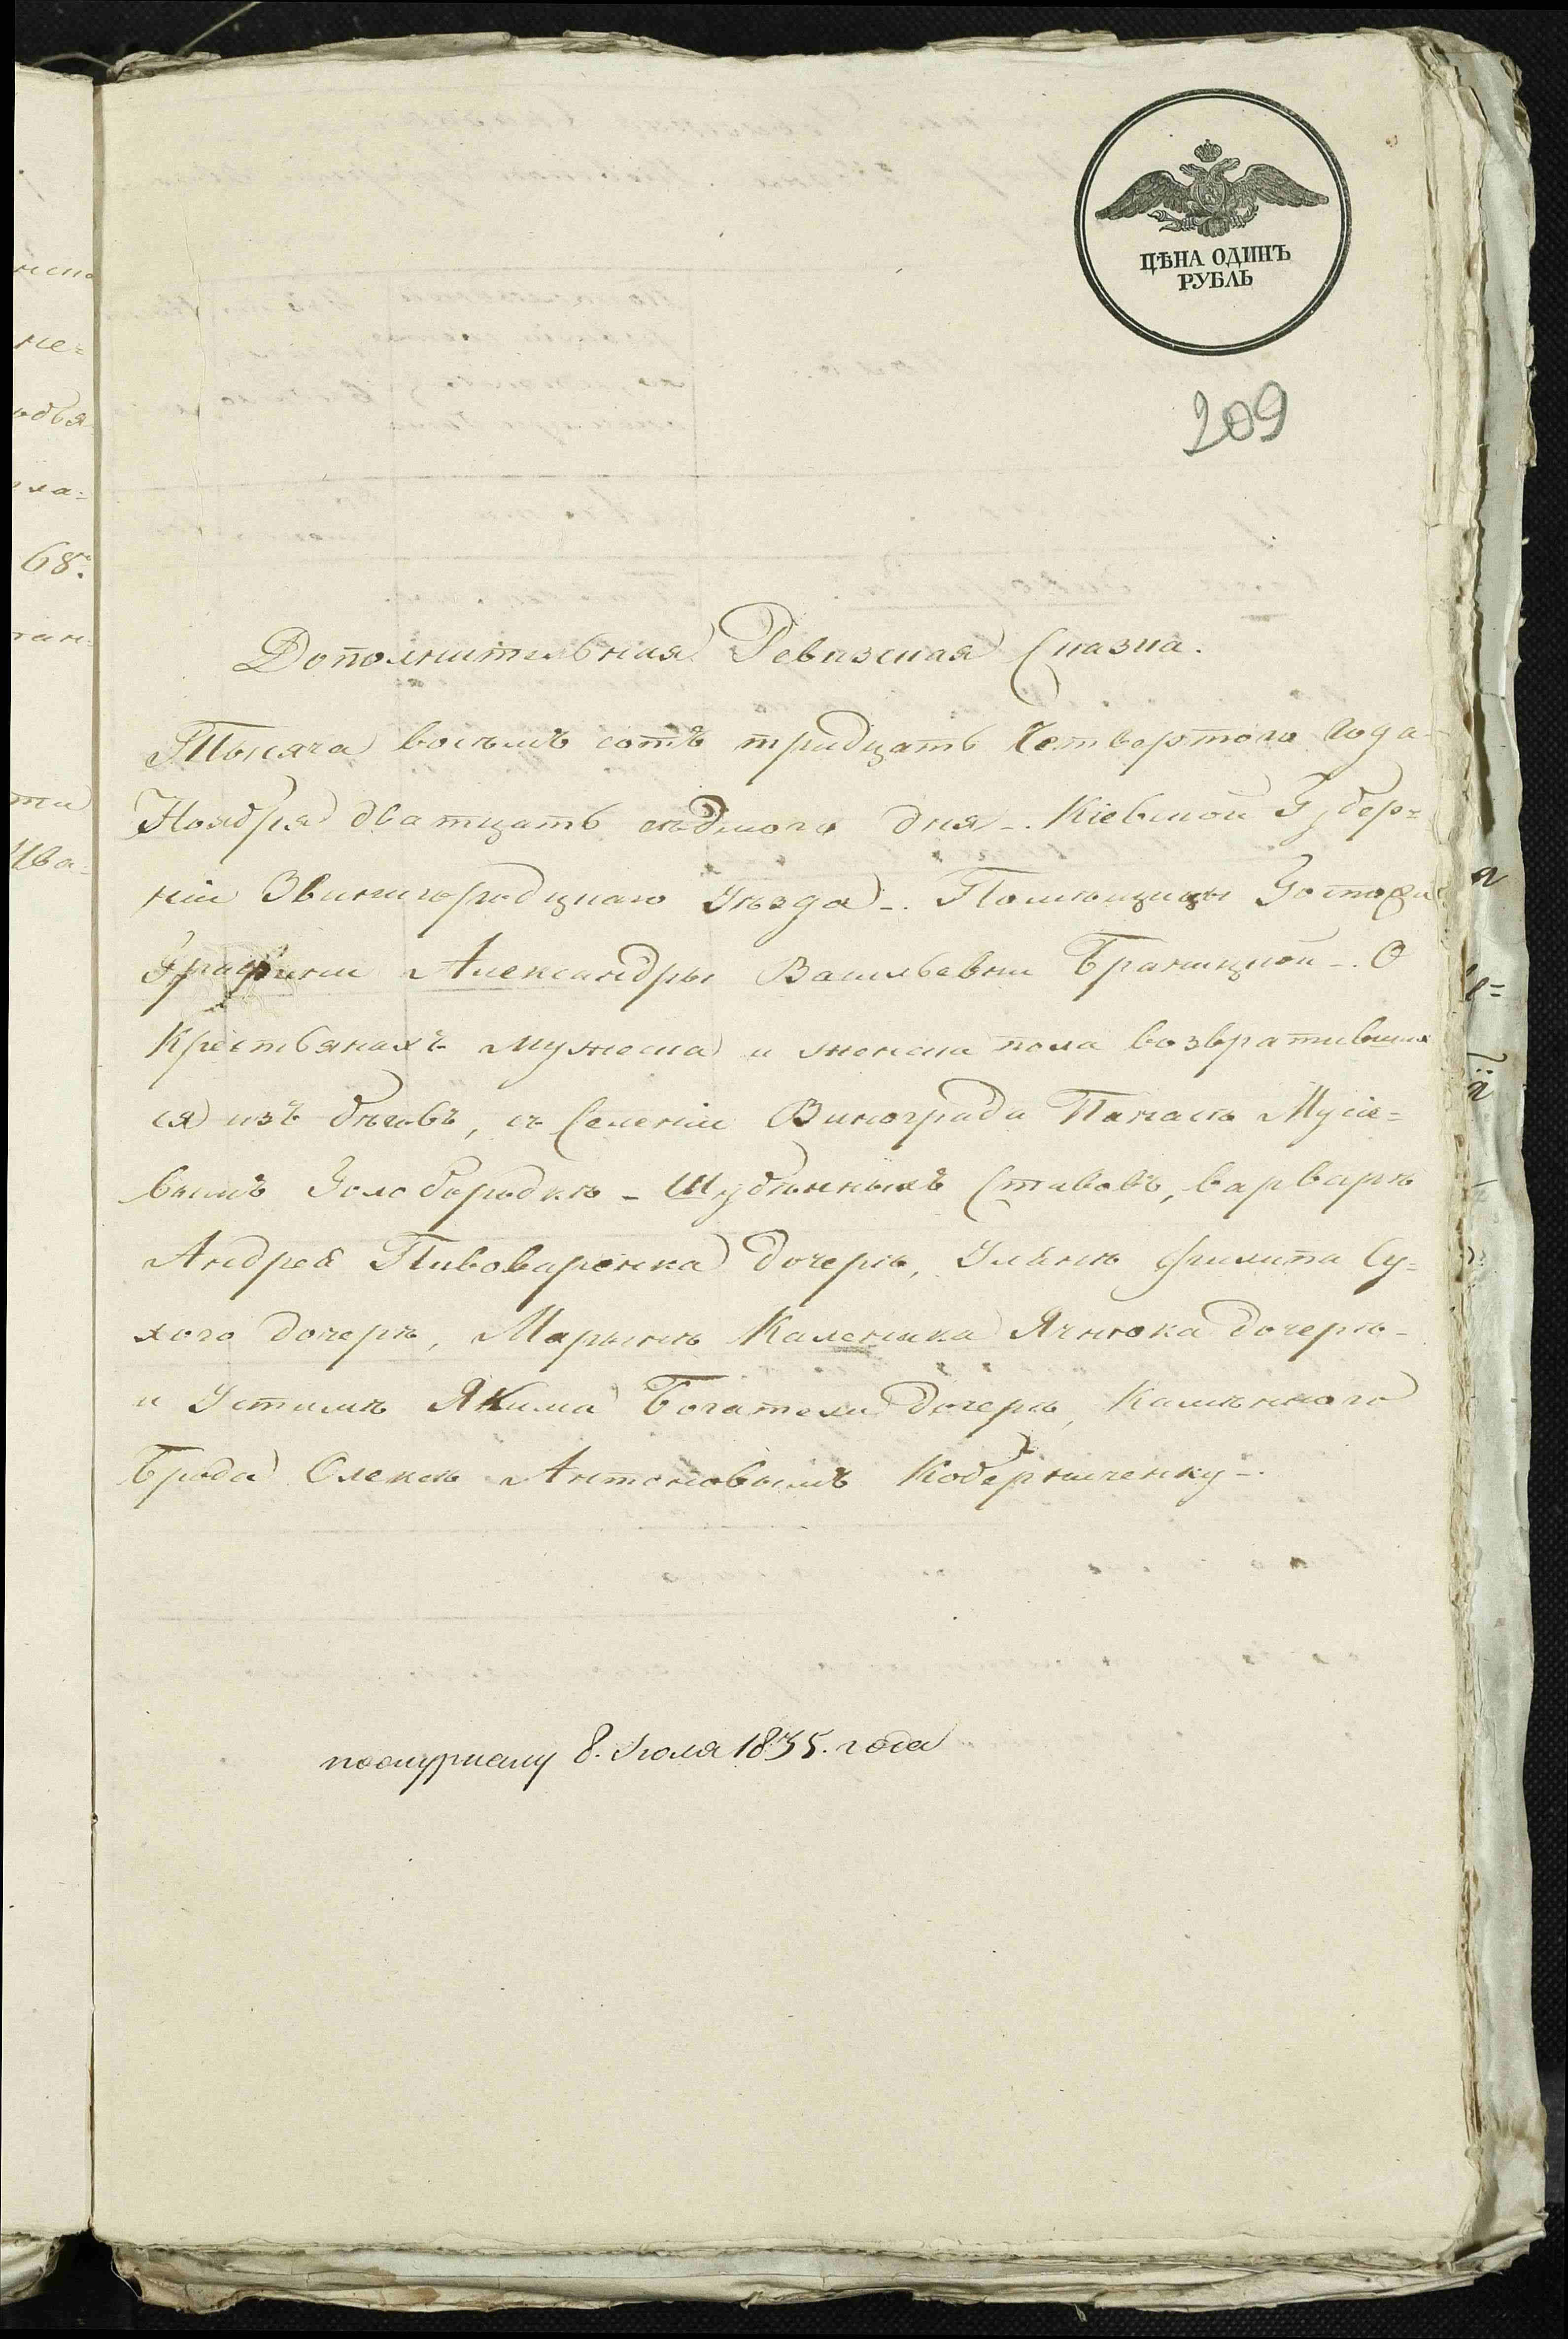 ЦѢНА ОДИНЪ
РУБЛЬ
209
Дополнительная Ревизская Сказка.
Тысяча восемъ сотъ тридцать Четвертого Года
Ноября дватцать седмого дня -. Кіевской Губер=
ніи Звинигородцкаго Уезда -. Помѣщицы Госпожи
Графини Александры Васильевни Браницкой -. О
Крестьянахъ мужеска и женска пола возвративших
ся изъ бѣговъ, съ Селеніи Винограда Панасѣ Мусіе=
вымъ Голобородкѣ - Шубѣнныхъ Ставовъ, варварѣ
Андрея Пивоваренка дочерѣ, Улянѣ Филипа Су=
хого дочерѣ, Марынѣ Каленика Ячнюка дочерѣ -
и Устимѣ Якима Богатели дочерѣ, Камѣнного
Брода Олексѣ Антоновымъ Кобернипченку -.
по журналу 8. Іюля 1835. года
68.